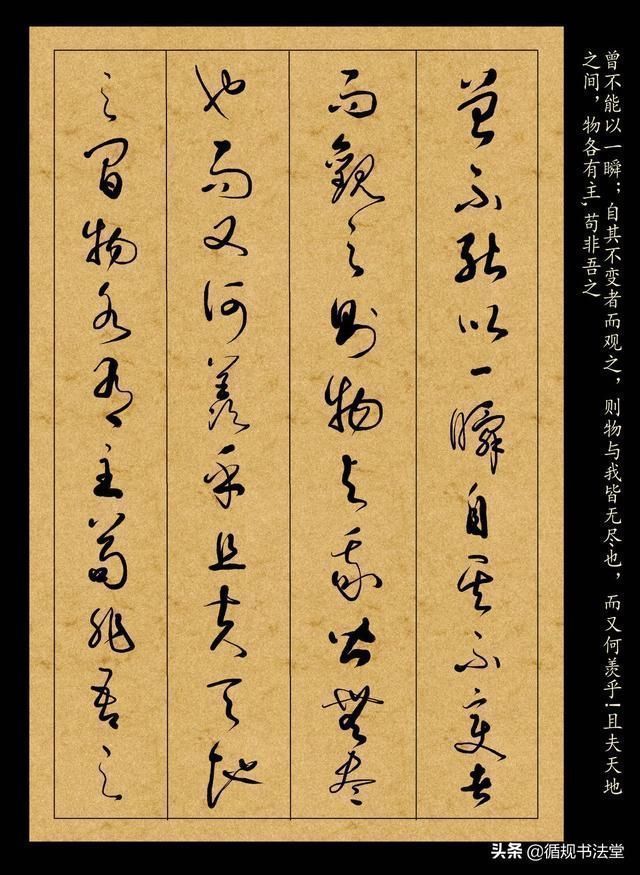 曾不能以一瞬；自其不变者而观之，则物与我皆无尽也，而又何羡乎!且夫天地
之间，物各有主,苟非吾之
曾不能以一瞬自其不变者
而觀之则物与我皆無尽
也而又何羡乎且夫天地
之间物各有主苟非吾之
头条 @循规书法堂